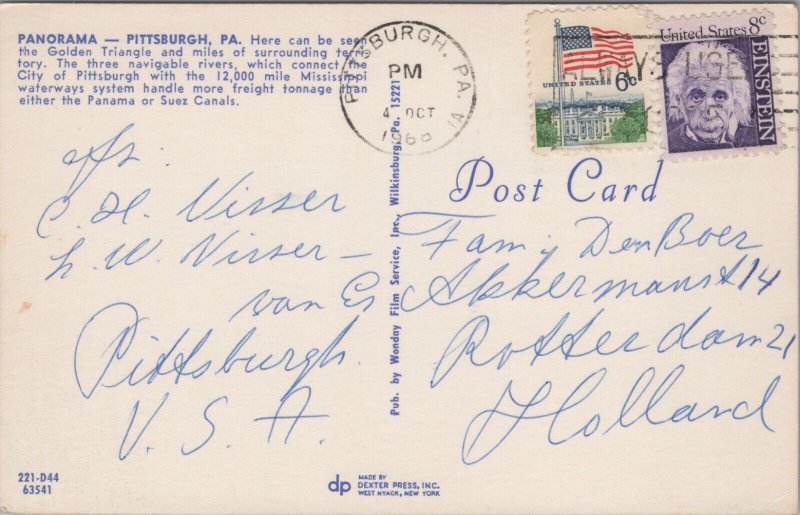 PANORAMA — PITTSBURGH, PA. Here can be seen
the Golden Triangle and miles of surrounding terri-
tory. The three navigable rivers, which connect
City of Pittsburgh with the 12,000 mile Mississippi
waterways system handle more freight tonnage than
either the Panama or Suez Canals.
PITTSBURGH, PA.
PM
4 OCT
1968
1A
ALWAYS USE
UNITED STATES 6c
United States 8c
EINSTEIN
Post Card
Afs.
C. H. Visser
L. W. Visser —
van Es
Pittsburgh.
U. S. A.
Pub. by Wonday Film Service, Inc., Wilkinsburg, Pa. 15221
Fam. Den Boer
Akkermanst 14
Rotterdam 21
Holland
221-D44
63541
dp
MADE BY
DEXTER PRESS, INC.
WEST NYACK, NEW YORK